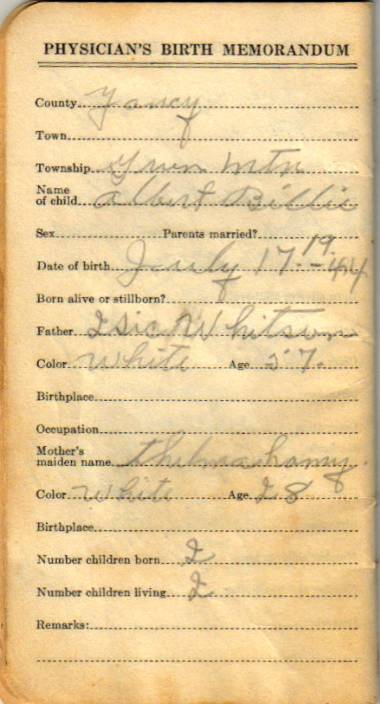 PHYSICIAN'S BIRTH MEMORANDUM
County Yancy
Town
Township Grun Mtn
Name
of child Albert Billie
Sex Parents married?
Date of birth July 17 - 19 - 44
Born alive or stillborn?
Father Whitson
Color White Age 37
Birthplace
Occupation
Mother's
maiden name Thelma
Color White Age 28
Birthplace
Number children born 2
Number children living 2
Remarks: